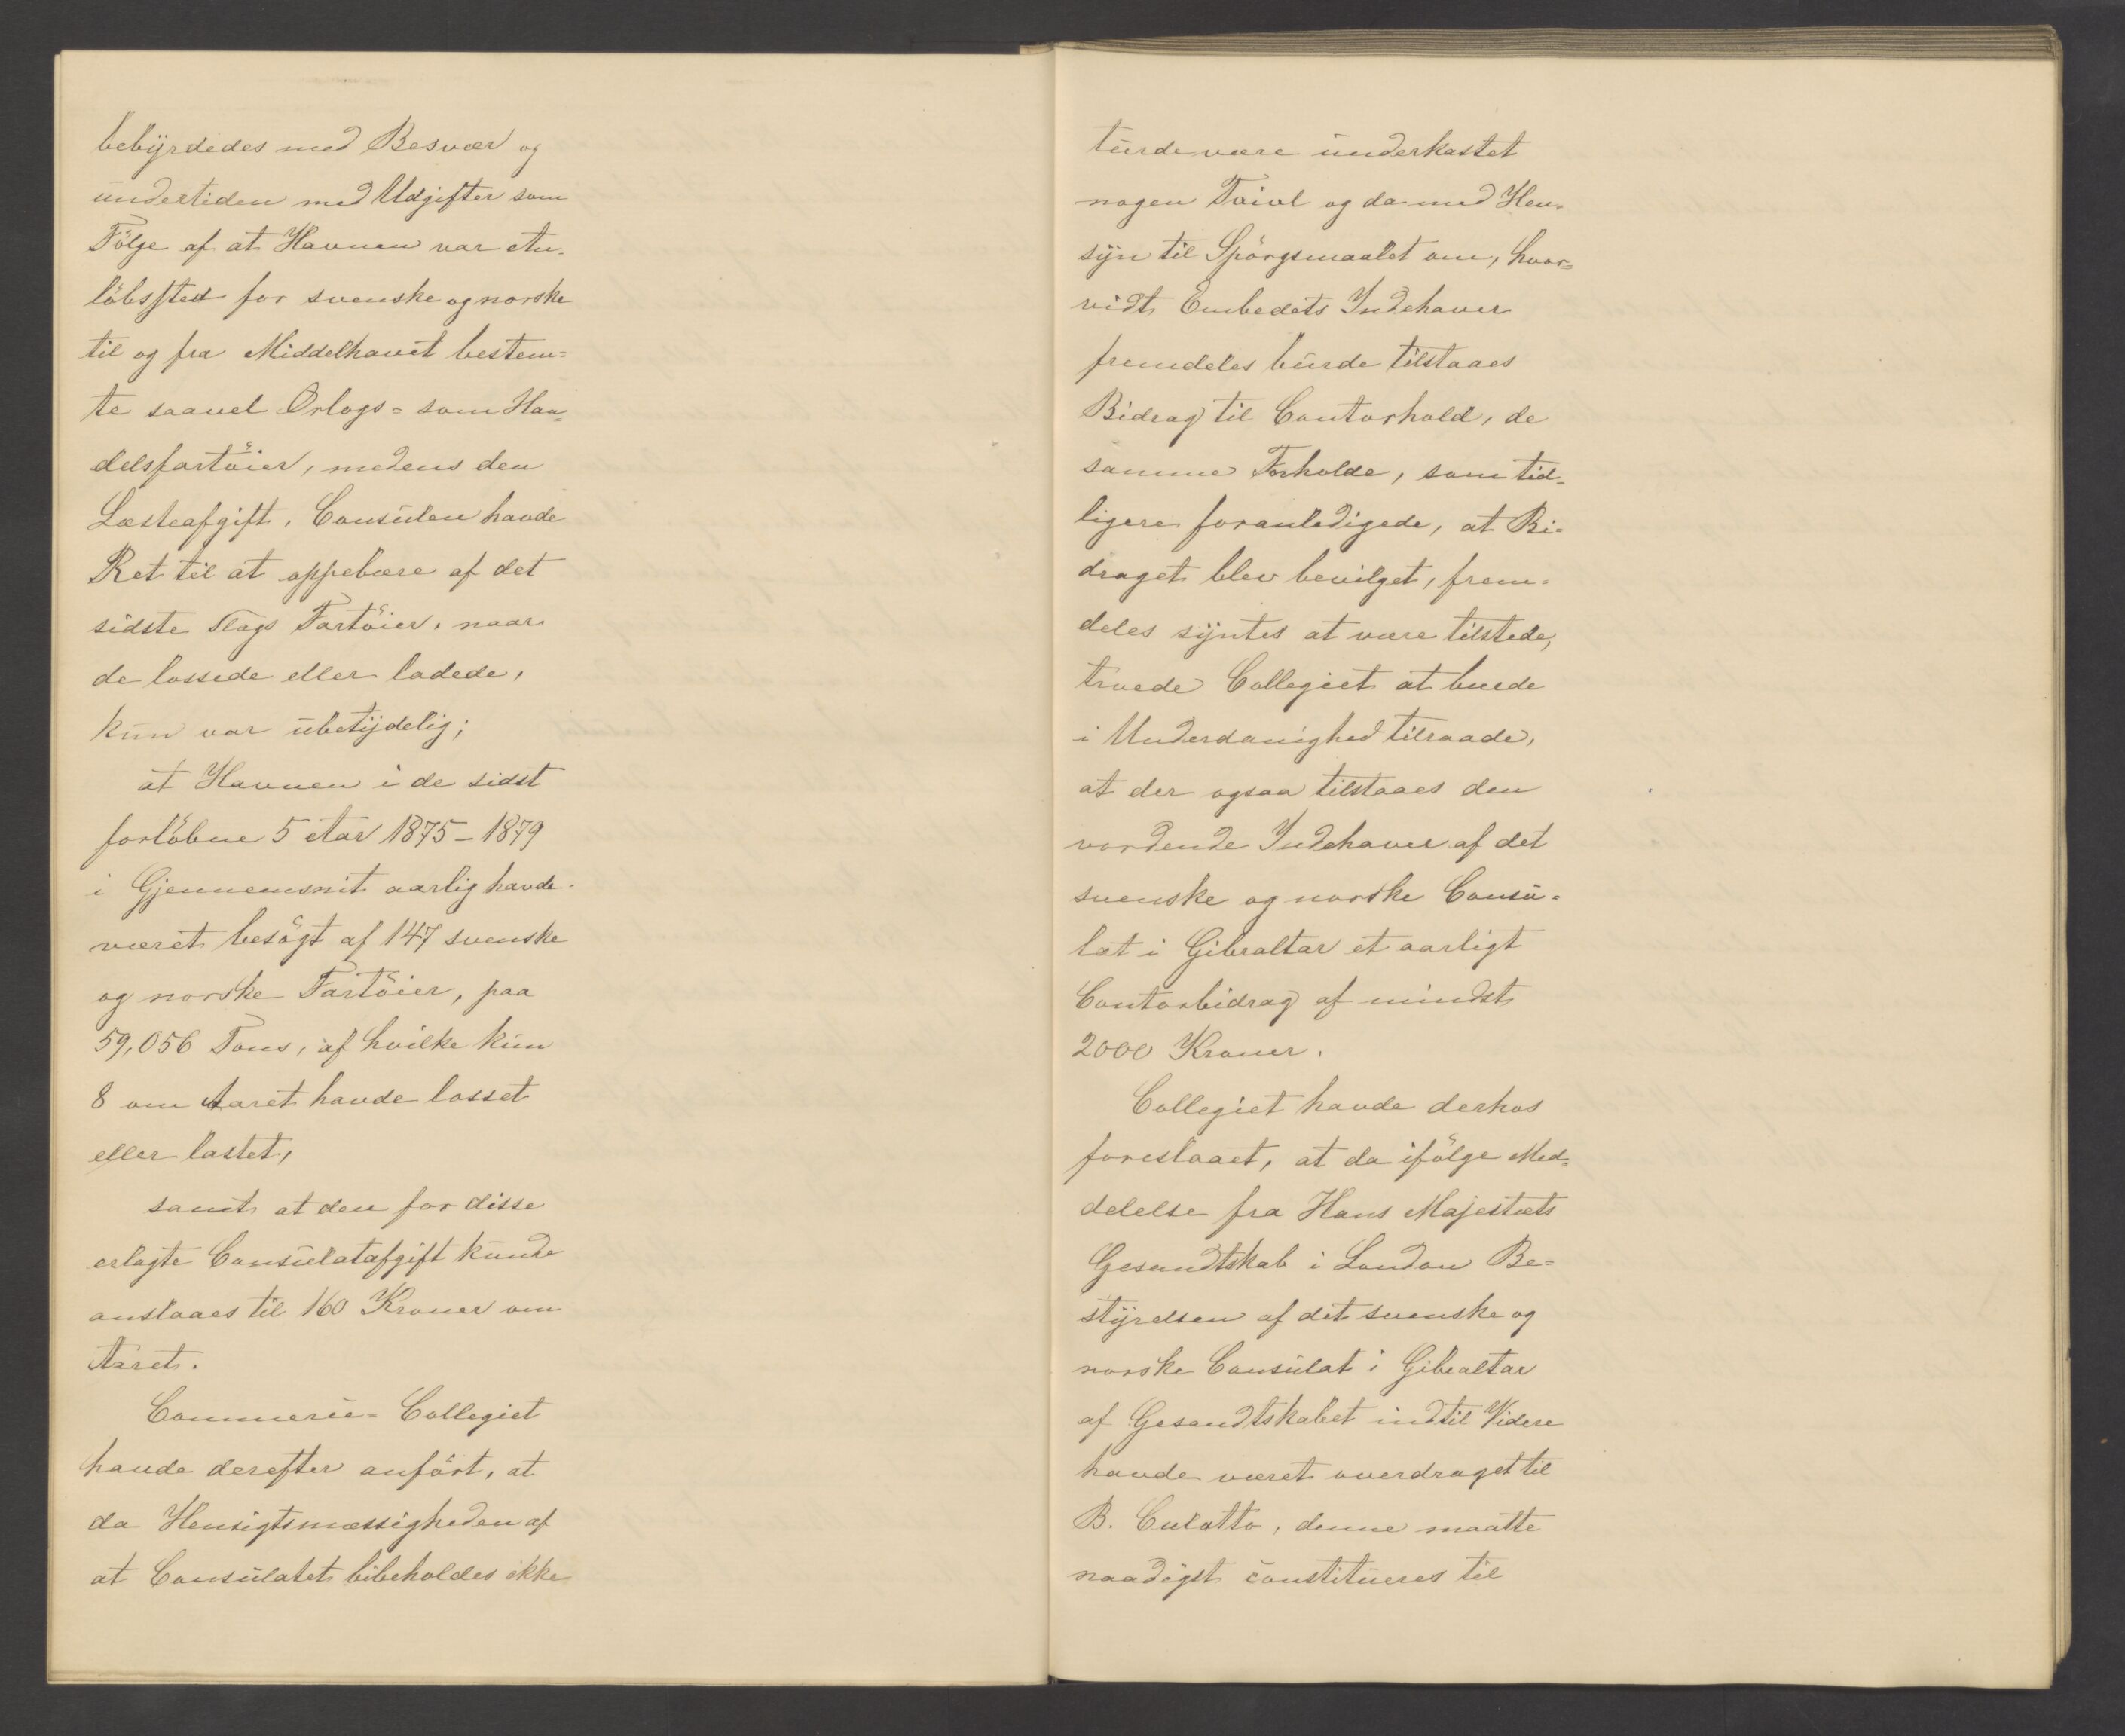 bebyrdedes med Besvær og
undertiden med Udgifter som
Følge af at Havnen var An-
løbssted for svenske og norske
til og fra Middelhavet bestem=
te saavel Orlogs= som Han=
delsfartøier, medens den
Læsteafgift, Consulen havde
Ret til at oppebære af det
sidste Slags Fartøier, naar
de lossede eller ladede,
kun var ubetydelig;
at Havnen i de sidst
forløbne 5 Aar 1875-1879
i Gjennemsnit aarlig havde
været besøgt af 147 svenske
og norske Fartøier, paa
59,056 Tons, af hvilke kun
8 om Aaret havde losset
eller lastet,
samt at den for disse
erlagte Consulatafgift kunde
anslaaes til 160 Kroner om
Aaret.
Commerce-Collegiet
havde derefter anført, at
da Hensigtsmæssigheden af
at Consulatet bibeholdes ikke
turde være underkastet
nogen Tvivl og da med Hen-
syn til Spørgsmaalet om, hvor=
vidt Embedets Indehaver
fremdeles burde tilstaaes
Bidrag til Contorhold, de
samme Forholde, som tid-
ligere foranledigede, at Bi-
draget blev bevilget, frem-
deles syntes at være tilstede,
troede Collegiet at burde
i Underdanighed tilraade,
at der ogsaa tilstaaes den
vordende Indehaver af det
svenske og norske Consu-
lat i Gibraltar et aarligt
Contorbidrag af mindst
2000 Kroner.
Collegiet havde derhos
foreslaaet, at da ifølge Med-
delelse fra Hans Majestæts
Gesandtskab i London Be-
styrelsen af det svenske og
norske Consulat i Gibraltar
af Gesandtskabet indtil Videre
havde været overdraget til
B. Culatto, denne maatte
naadigst constitueres til